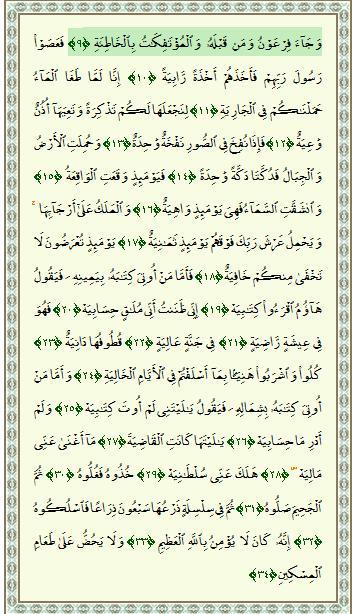 وَجَآءَ فِرْعَوْنُ وَمَن قَبْلَهُۥ وَٱلْمُؤْتَفِكَـٰتُ بِٱلْخَاطِئَةِ ﴿٩﴾ فَعَصَوْا۟
رَسُولَ رَبِّهِمْ فَأَخَذَهُمْ أَخْذَةً رَّابِيَةً ﴿١٠﴾ إِنَّا لَمَّا طَغَا ٱلْمَآءُ
حَمَلْنَـٰكُمْ فِى ٱلْجَارِيَةِ ﴿١١﴾ لِنَجْعَلَهَا لَكُمْ تَذْكِرَةً وَتَعِيَهَآ أُذُنٌ
وَٰعِيَةٌ ﴿١٢﴾ فَإِذَا نُفِخَ فِى ٱلصُّورِ نَفْخَةٌ وَٰحِدَةٌ ﴿١٣﴾ وَحُمِلَتِ ٱلْأَرْضُ
وَٱلْجِبَالُ فَدُكَّتَا دَكَّةً وَٰحِدَةً ﴿١٤﴾ فَيَوْمَئِذٍ وَقَعَتِ ٱلْوَاقِعَةُ ﴿١٥﴾
وَٱنشَقَّتِ ٱلسَّمَآءُ فَهِىَ يَوْمَئِذٍ وَاهِيَةٌ ﴿١٦﴾ وَٱلْمَلَكُ عَلَىٰٓ أَرْجَآئِهَا ۚ
وَيَحْمِلُ عَرْشَ رَبِّكَ فَوْقَهُمْ يَوْمَئِذٍ ثَمَـٰنِيَةٌ ﴿١٧﴾ يَوْمَئِذٍ تُعْرَضُونَ لَا
تَخْفَىٰ مِنكُمْ خَافِيَةٌ ﴿١٨﴾ فَأَمَّا مَنْ أُوتِىَ كِتَـٰبَهُۥ بِيَمِينِهِۦ فَيَقُولُ
هَآؤُمُ ٱقْرَءُوا۟ كِتَـٰبِيَهْ ﴿١٩﴾ إِنِّى ظَنَنتُ أَنِّى مُلَـٰقٍ حِسَابِيَهْ ﴿٢٠﴾ فَهُوَ
فِى عِيشَةٍ رَّاضِيَةٍ ﴿٢١﴾ فِى جَنَّةٍ عَالِيَةٍ ﴿٢٢﴾ قُطُوفُهَا دَانِيَةٌ ﴿٢٣﴾
كُلُوا۟ وَٱشْرَبُوا۟ هَنِيٓـًٔۢا بِمَآ أَسْلَفْتُمْ فِى ٱلْأَيَّامِ ٱلْخَالِيَةِ ﴿٢٤﴾ وَأَمَّا مَنْ
أُوتِىَ كِتَـٰبَهُۥ بِشِمَالِهِۦ فَيَقُولُ يَـٰلَيْتَنِى لَمْ أُوتَ كِتَـٰبِيَهْ ﴿٢٥﴾ وَلَمْ
أَدْرِ مَا حِسَابِيَهْ ﴿٢٦﴾ يَـٰلَيْتَهَا كَانَتِ ٱلْقَاضِيَةَ ﴿٢٧﴾ مَآ أَغْنَىٰ عَنِّى
مَالِيَهْ ۜ ﴿٢٨﴾ هَلَكَ عَنِّى سُلْطَـٰنِيَهْ ﴿٢٩﴾ خُذُوهُ فَغُلُّوهُ ﴿٣٠﴾ ثُمَّ
ٱلْجَحِيمَ صَلُّوهُ ﴿٣١﴾ ثُمَّ فِى سِلْسِلَةٍ ذَرْعُهَا سَبْعُونَ ذِرَاعًا فَٱسْلُكُوهُ
﴿٣٢﴾ إِنَّهُۥ كَانَ لَا يُؤْمِنُ بِٱللَّهِ ٱلْعَظِيمِ ﴿٣٣﴾ وَلَا يَحُضُّ عَلَىٰ طَعَامِ
ٱلْمِسْكِينِ ﴿٣٤﴾